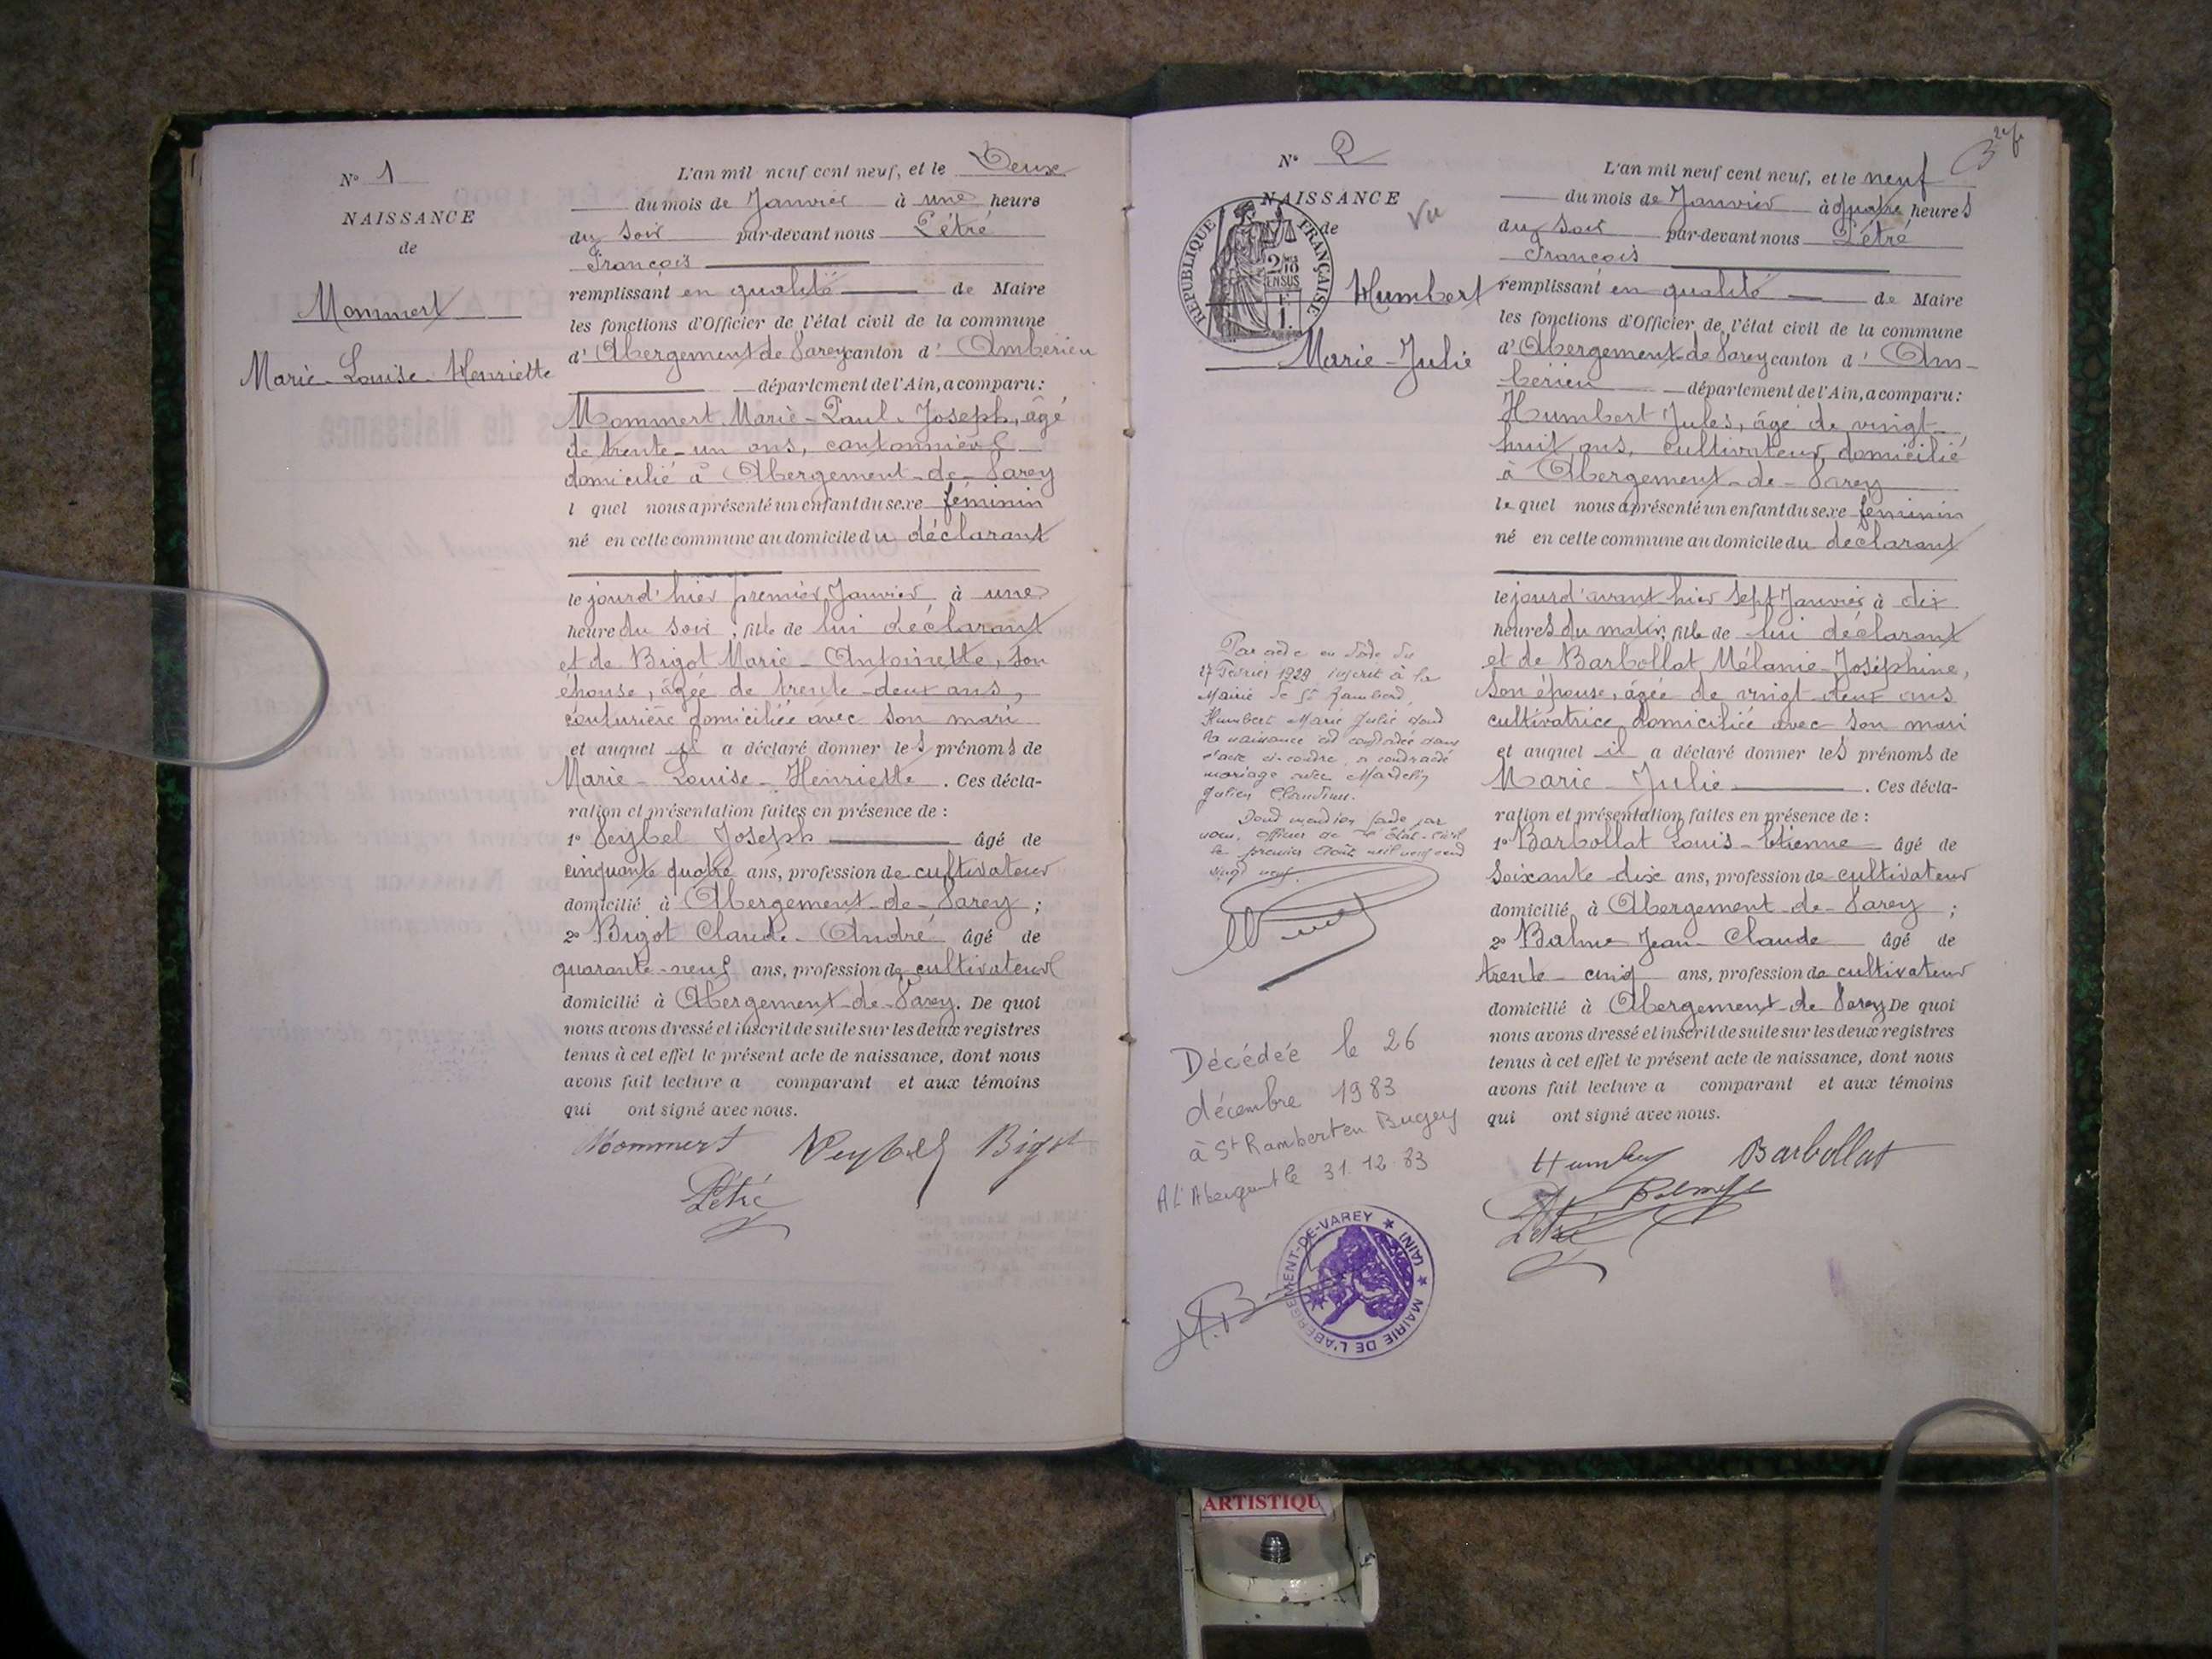 N° 1
NAISSANCE
de
Mommert
Marie-Louise-Henriette
L'an mil neuf cent neuf, et le Deux
du mois de Janvier à une heure
du soir par-devant nous Létré
François
remplissant en qualité de Maire
les fonctions d'Officier de l'état civil de la commune
d'Abergement de Varey canton d'Ambérieu
département de l'Ain, a comparu :
Mommert Marie-Paul-Joseph, âgé
de trente-un ans, cantonnier
domicilié à Abergement-de-Varey
l quel nous a présenté un enfant du sexe féminin
né en cette commune au domicile du déclarant
le jour d'hier premier Janvier à une
heure du soir, fille de lui déclarant
et de Bigot Marie-Antoinette, son
épouse, âgée de trente-deux ans,
couturière domiciliée avec son mari
et auquel il a déclaré donner les prénoms de
Marie-Louise-Henriette. Ces décla-
ration et présentation faites en présence de :
1° Veybel Joseph âgé de
cinquante quatre ans, profession de cultivateur
domicilié à Abergement-de-Varey ;
2° Bigot Claude-André âgé de
quarante-neuf ans, profession de cultivateur
domicilié à Abergement-de-Varey. De quoi
nous avons dressé et inscrit de suite sur les deux registres
tenus à cet effet le présent acte de naissance, dont nous
avons fait lecture a comparant et aux témoins
qui ont signé avec nous.
Mommert Veybel Bigot
Létré
N° 2
NAISSANCE
de
Vu
REPUBLIQUE FRANÇAISE
Humbert
Marie-Julie
Par acte en date du
17 Février 1929 inscrit à la
Mairie de St Rambert,
Humbert Marie Julie dont
la naissance est constatée dans
l'acte ci-contre, a contracté
mariage avec
Julien Claudius.
Dont mention faite par
nous, officier de l'état-civil
le premier Août mil neuf cent
vingt neuf.
Décédée le 26
décembre 1983
à St Rambert en Bugey
A L'Abergement le 31.12.83
MAIRIE DE L'ABERGEMENT-DE-VAREY (AIN)
L'an mil neuf cent neuf, et le neuf
du mois de Janvier à quatre heures
du soir par-devant nous Létré
François
remplissant en qualité de Maire
les fonctions d'Officier de l'état civil de la commune
d'Abergement-de-Varey canton d'Am-
bérieu département de l'Ain, a comparu :
Humbert Jules, âgé de vingt-
huit ans, cultivateur, domicilié
à Abergement-de-Varey
le quel nous a présenté un enfant du sexe féminin
né en cette commune au domicile du déclarant
le jour d'avant hier sept Janvier à dix
heures du matin, fille de lui déclarant
et de Barbollat Mélanie-Joséphine,
son épouse, âgée de vingt-deux ans
cultivatrice domiciliée avec son mari
et auquel il a déclaré donner les prénoms de
Marie-Julie. Ces décla-
ration et présentation faites en présence de :
1° Barbollat Louis-Etienne âgé de
soixante-dix ans, profession de cultivateur
domicilié à Abergement-de-Varey ;
2° Balme Jean-Claude âgé de
trente-cinq ans, profession de cultivateur
domicilié à Abergement-de-Varey De quoi
nous avons dressé et inscrit de suite sur les deux registres
tenus à cet effet le présent acte de naissance, dont nous
avons fait lecture a comparant et aux témoins
qui ont signé avec nous.
Humbert Barbollat
Balme
Létré
ARTISTIQU